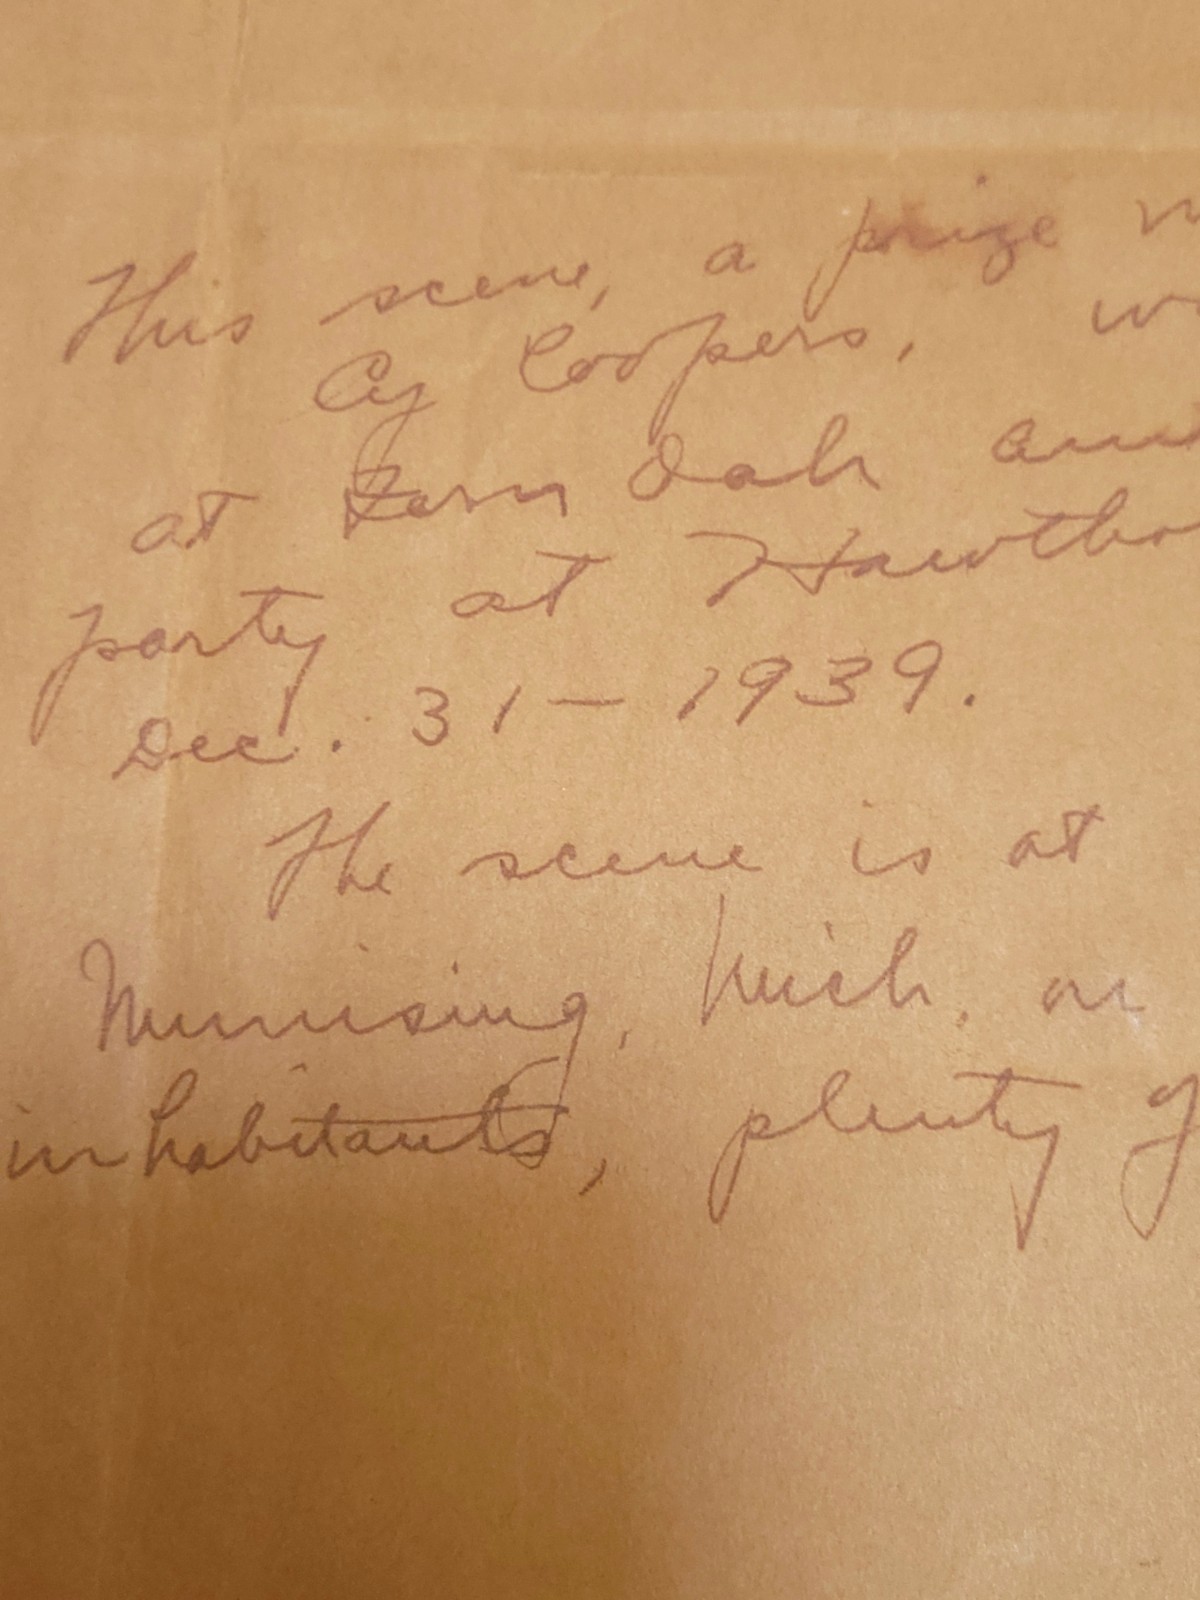 This scene, a prize
Cy Coopers,
at Fern Dah
party at
Dec. 31 - 1939.
The scene is at
Munising, Mich. on
inhabitants, plenty